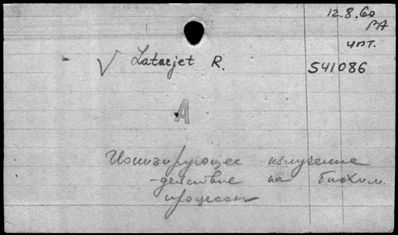 12.8.60
РА
чит.
√ Latarjet R.
541086
А
Ионизирующее излучение
-действие на биохим.
процессы